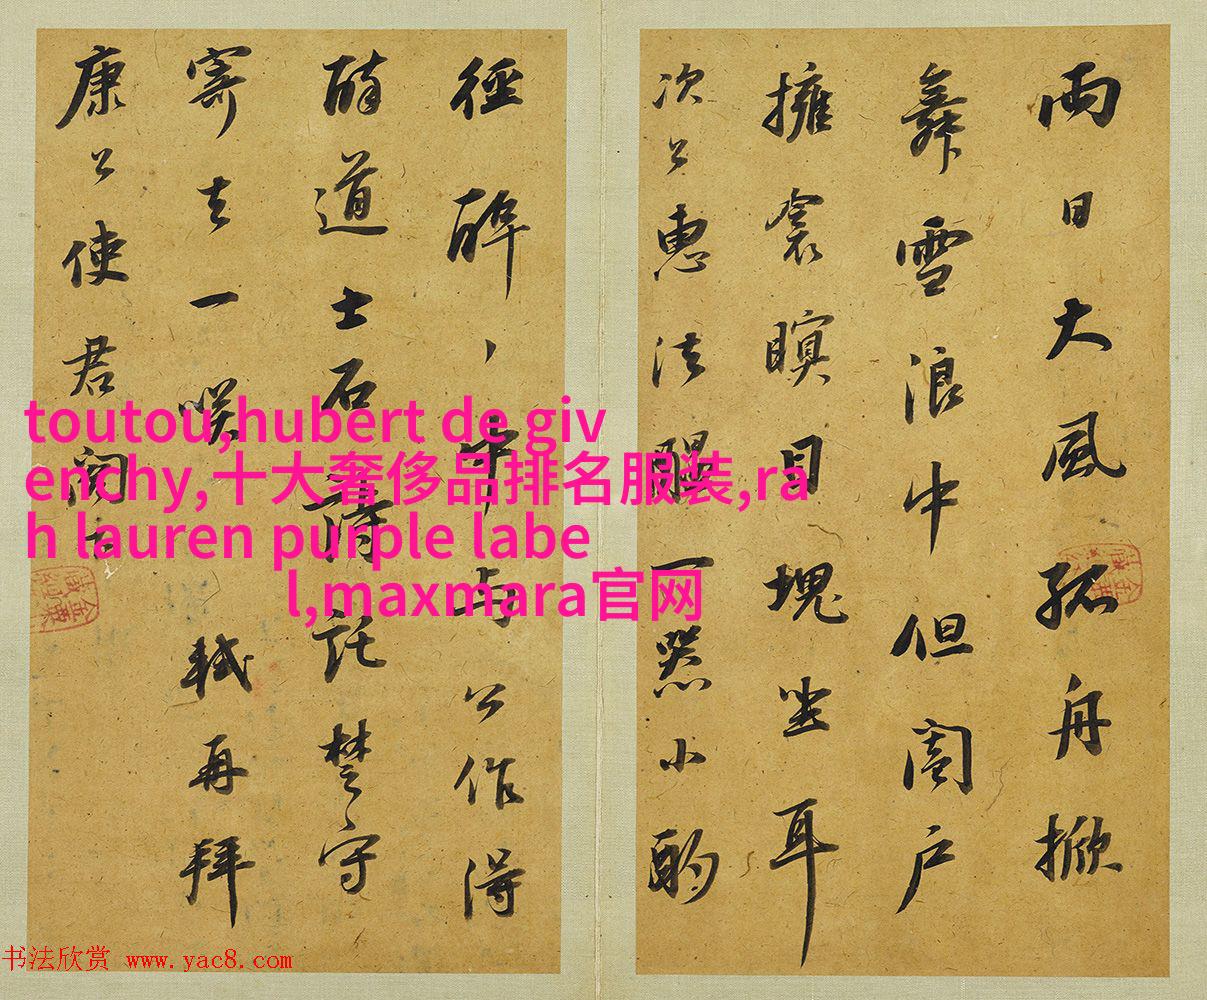 兩日大風孤舟掀
舞雪浪中但闔户
擁衾瞑目塊坐耳
次公惠法醞一器小酌
徑醉醉中與公作得
醉道士石詩託楚守
寄去一咲 軾再拜
康公使君閣下
toutou,hubert de giv
enchy,十大奢侈品排名服装,ra
h lauren purple labe
l,maxmara官网
书法欣赏 www.yac8.com